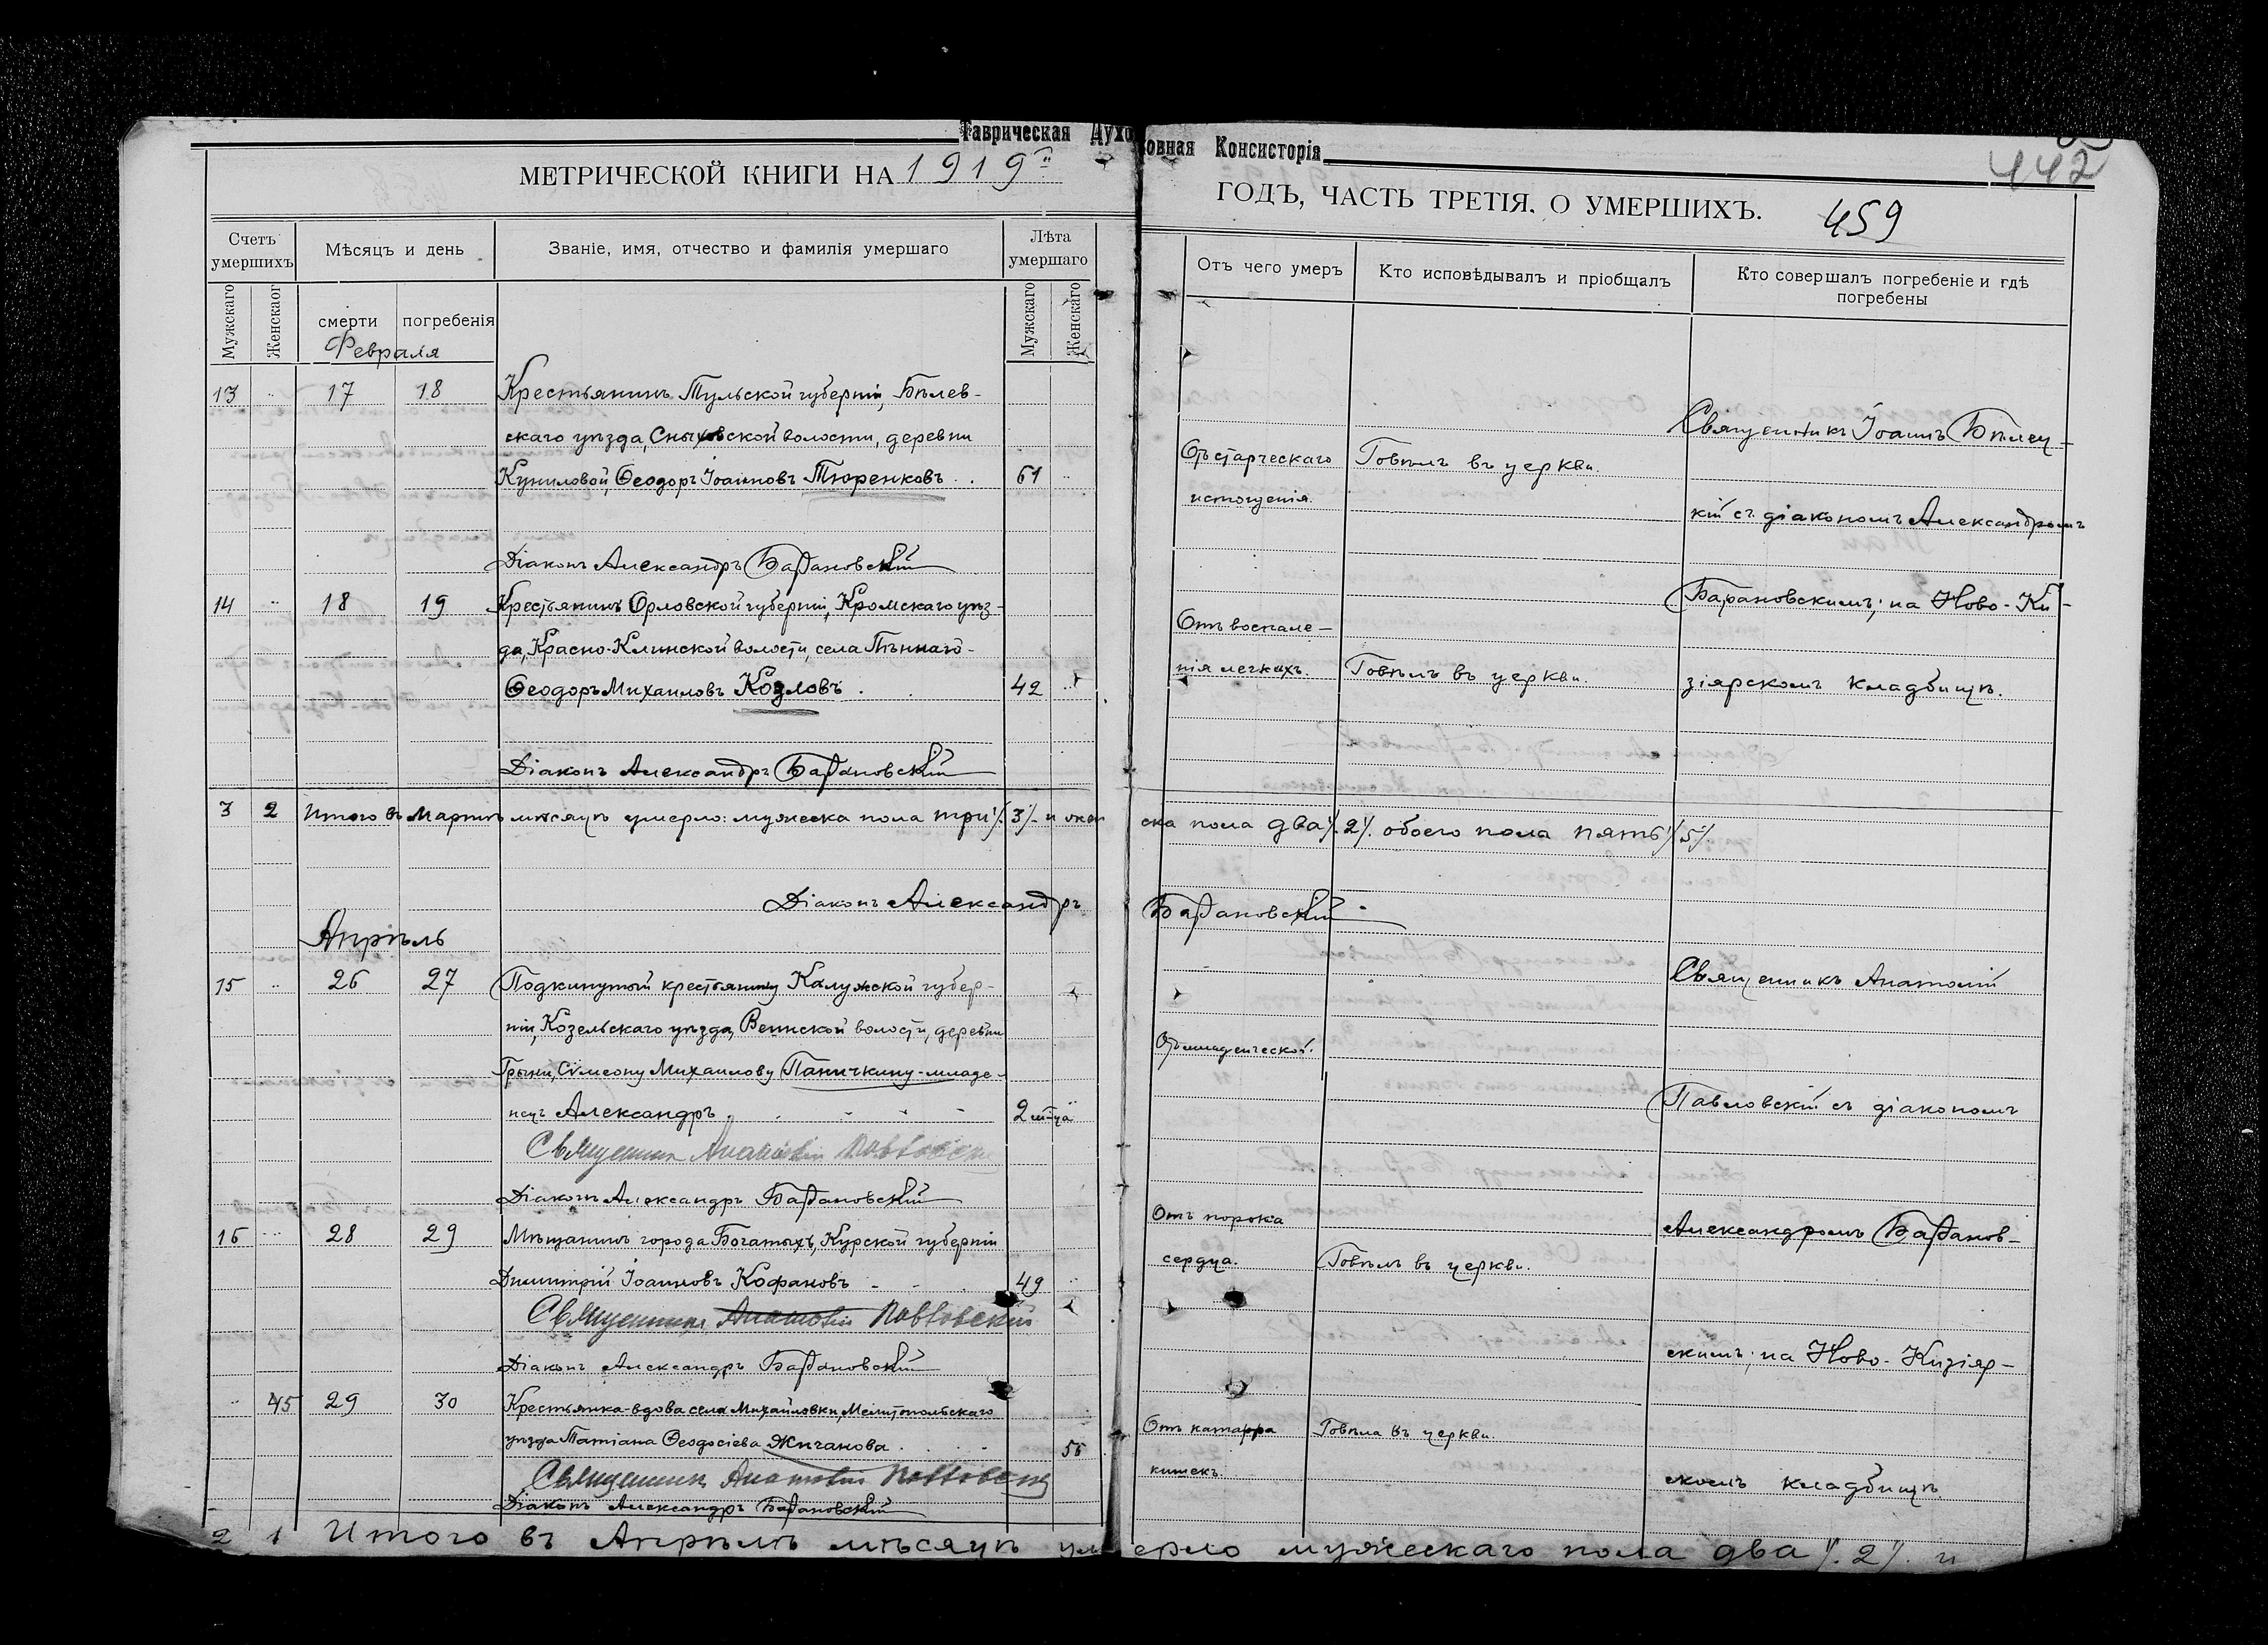 Таврическая Духовная Консисторія
442
МЕТРИЧЕСКОЙ КНИГИ НА 1919й
ГОДЪ, ЧАСТЬ ТРЕТІЯ, О УМЕРШИХЪ.
459
Счетъ умершихъ
Мѣсяцъ и день
Званіе, имя, отчество и фамилія умершаго
Лѣта умершаго
Отъ чего умеръ
Кто исповѣдывалъ и пріобщалъ
Кто совершалъ погребеніе и гдѣ
погребены
Мужскаго
Женскаог
смерти
погребенія
Мужскаго
Женскаго
Февраля
13 17 18 Крестьянинъ Тульской губерніи, Бѣлев-
скаго уѣзда, Сныховской волости, деревни
Куниловой, Ѳеодоръ Іоанновъ Тюренковъ 61
Отъ старческаго
истощенія.
Говѣлъ въ церкви.
Діаконъ Александръ Барановскій
14 18 19 Крестьянинъ Орловской губерніи, Кромскаго уѣз-
да, Красно-Клинской волости, села
Ѳеодоръ Михаиловъ Козловъ 42
Отъ воспале-
нія легкихъ.
Говѣлъ въ церкви.
Діаконъ Александръ Барановскій
Священникъ Іоаннъ Бѣлец-
кій съ діакономъ Александромъ
Барановскимъ; на Ново-Ки-
зіярскомъ кладбищѣ.
3 2 Итого въ Мартѣ мѣсяцѣ умерло: мужеска пола три /.3/. и женска пола два /.2/. обоего пола пять /.5/.
Діаконъ Александръ Барановскій
Апрѣль
15 26 27 Подкинутый крестьянину Калужской губер-
ніи, Козельскаго уѣзда, Веинской волости, деревни
Грыни, Сѵмеону Михаилову Паничкину-младе-
нецъ Александръ 2 м-ца
Отъ младенческой.
Священник Анатолій Павловскій
Діаконъ Александръ Барановскій
16 28 29 Мѣщанинъ города Богатыхъ, Курской губерніи
Димитрій Іоанновъ Кофановъ 49
Отъ порока
сердца.
Говѣлъ въ церкви.
Священникъ Анатолій Павловскій
Діаконъ Александръ Барановскій
45 29 30 Крестьянка-вдова села Михайловки, Мелитопольскаго
уѣзда Татіана Ѳеодосіева Жиганова 56
Отъ катарра
кишекъ.
Говѣла въ церкви.
Священник Анатолій Павловскій
Діаконъ Александръ Барановскій
Священникъ Анатолій
Павловскій съ діакономъ
Александромъ Баранов-
скимъ; на Ново-Кизіяр-
скомъ кладбищѣ.
2 1 Итого въ Апрѣлѣ мѣсяцѣ умерло мужескаго пола два /.2/. и